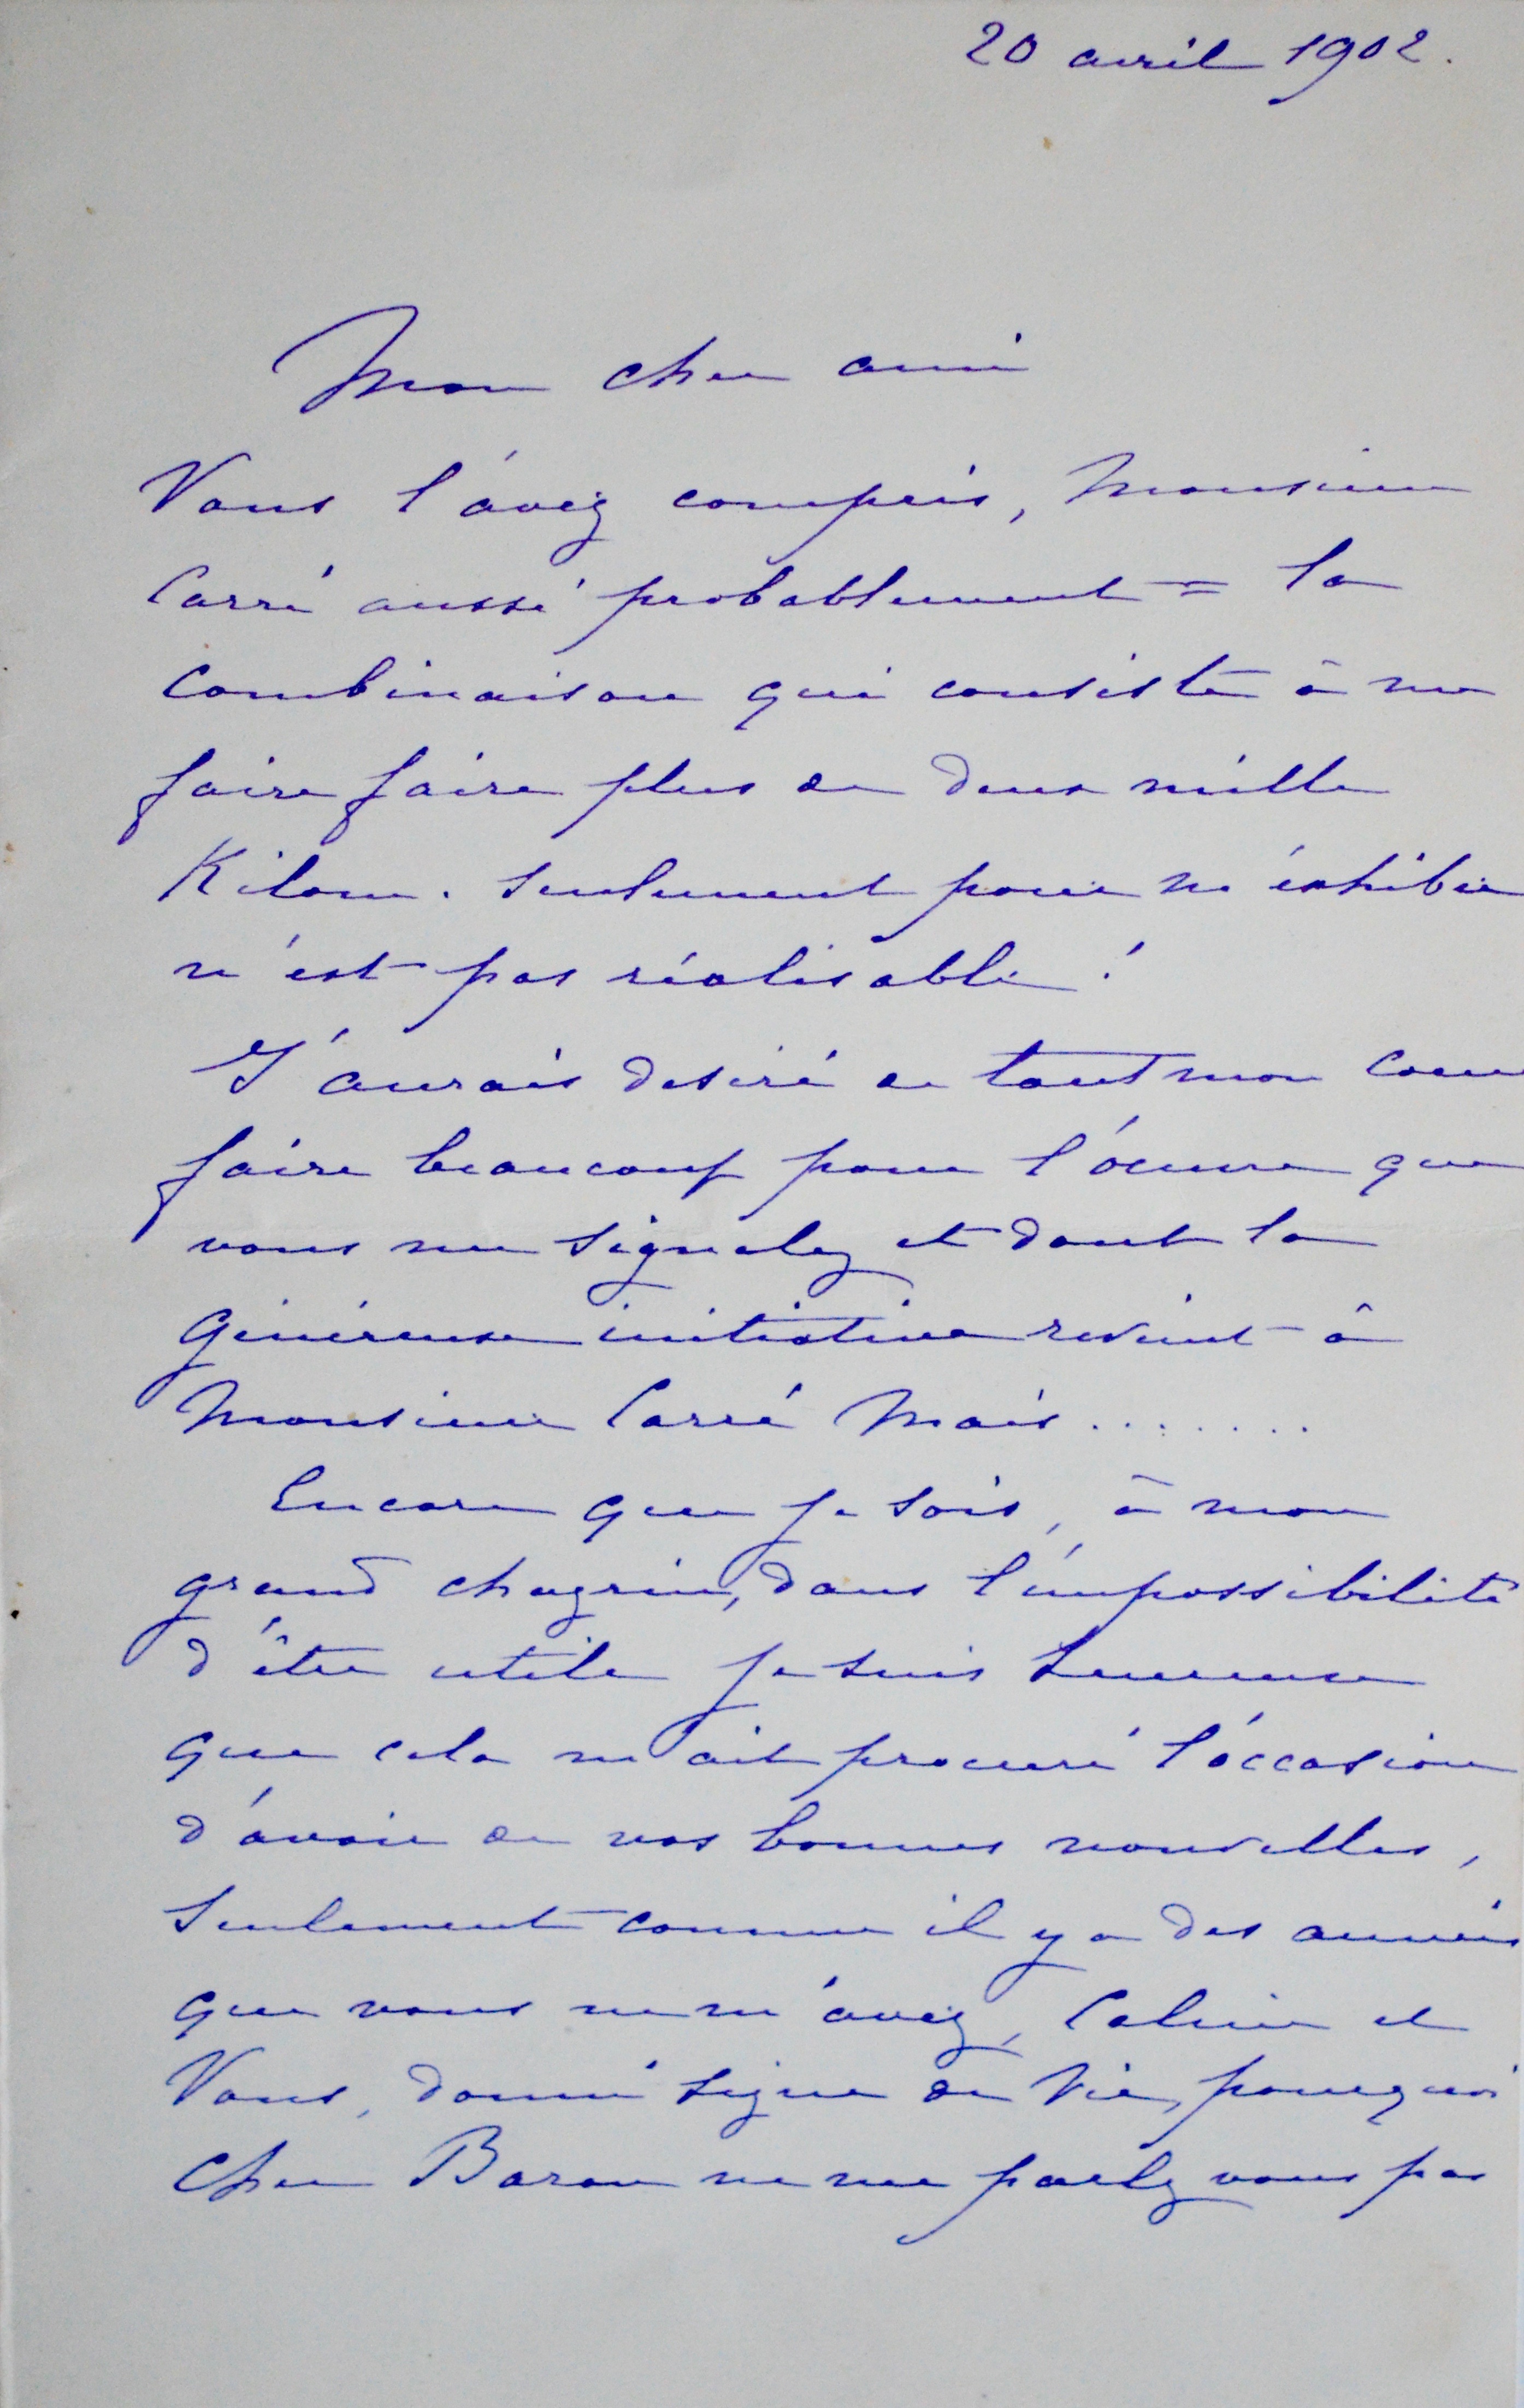 20 avril 1902.
Mon cher ami
Vous l'avez compris, Monsieur
Carré aussi probablement = la
combinaison qui consiste à me
faire faire plus de deux mille
Kilom. seulement pour m'éxhiber
n'est pas réalisable !
J'aurais desiré de tout mon coeur
faire beaucoup pour l'oeuvre que
vous me signalez et dont la
généreuse initiative revient à
Monsieur Carré Mais .......
Encore que je sois, à mon
grand chagrin, dans l'impossibilité
d'être utile je suis heureuse
que cela m'ait procuré l'occasion
d'avoir de vos bonnes nouvelles,
Seulement comme il y a des années
que vous ne m'avez, et
Vous, donné signe de vie, pourquoi
cher Baron ne me parlez vous pas